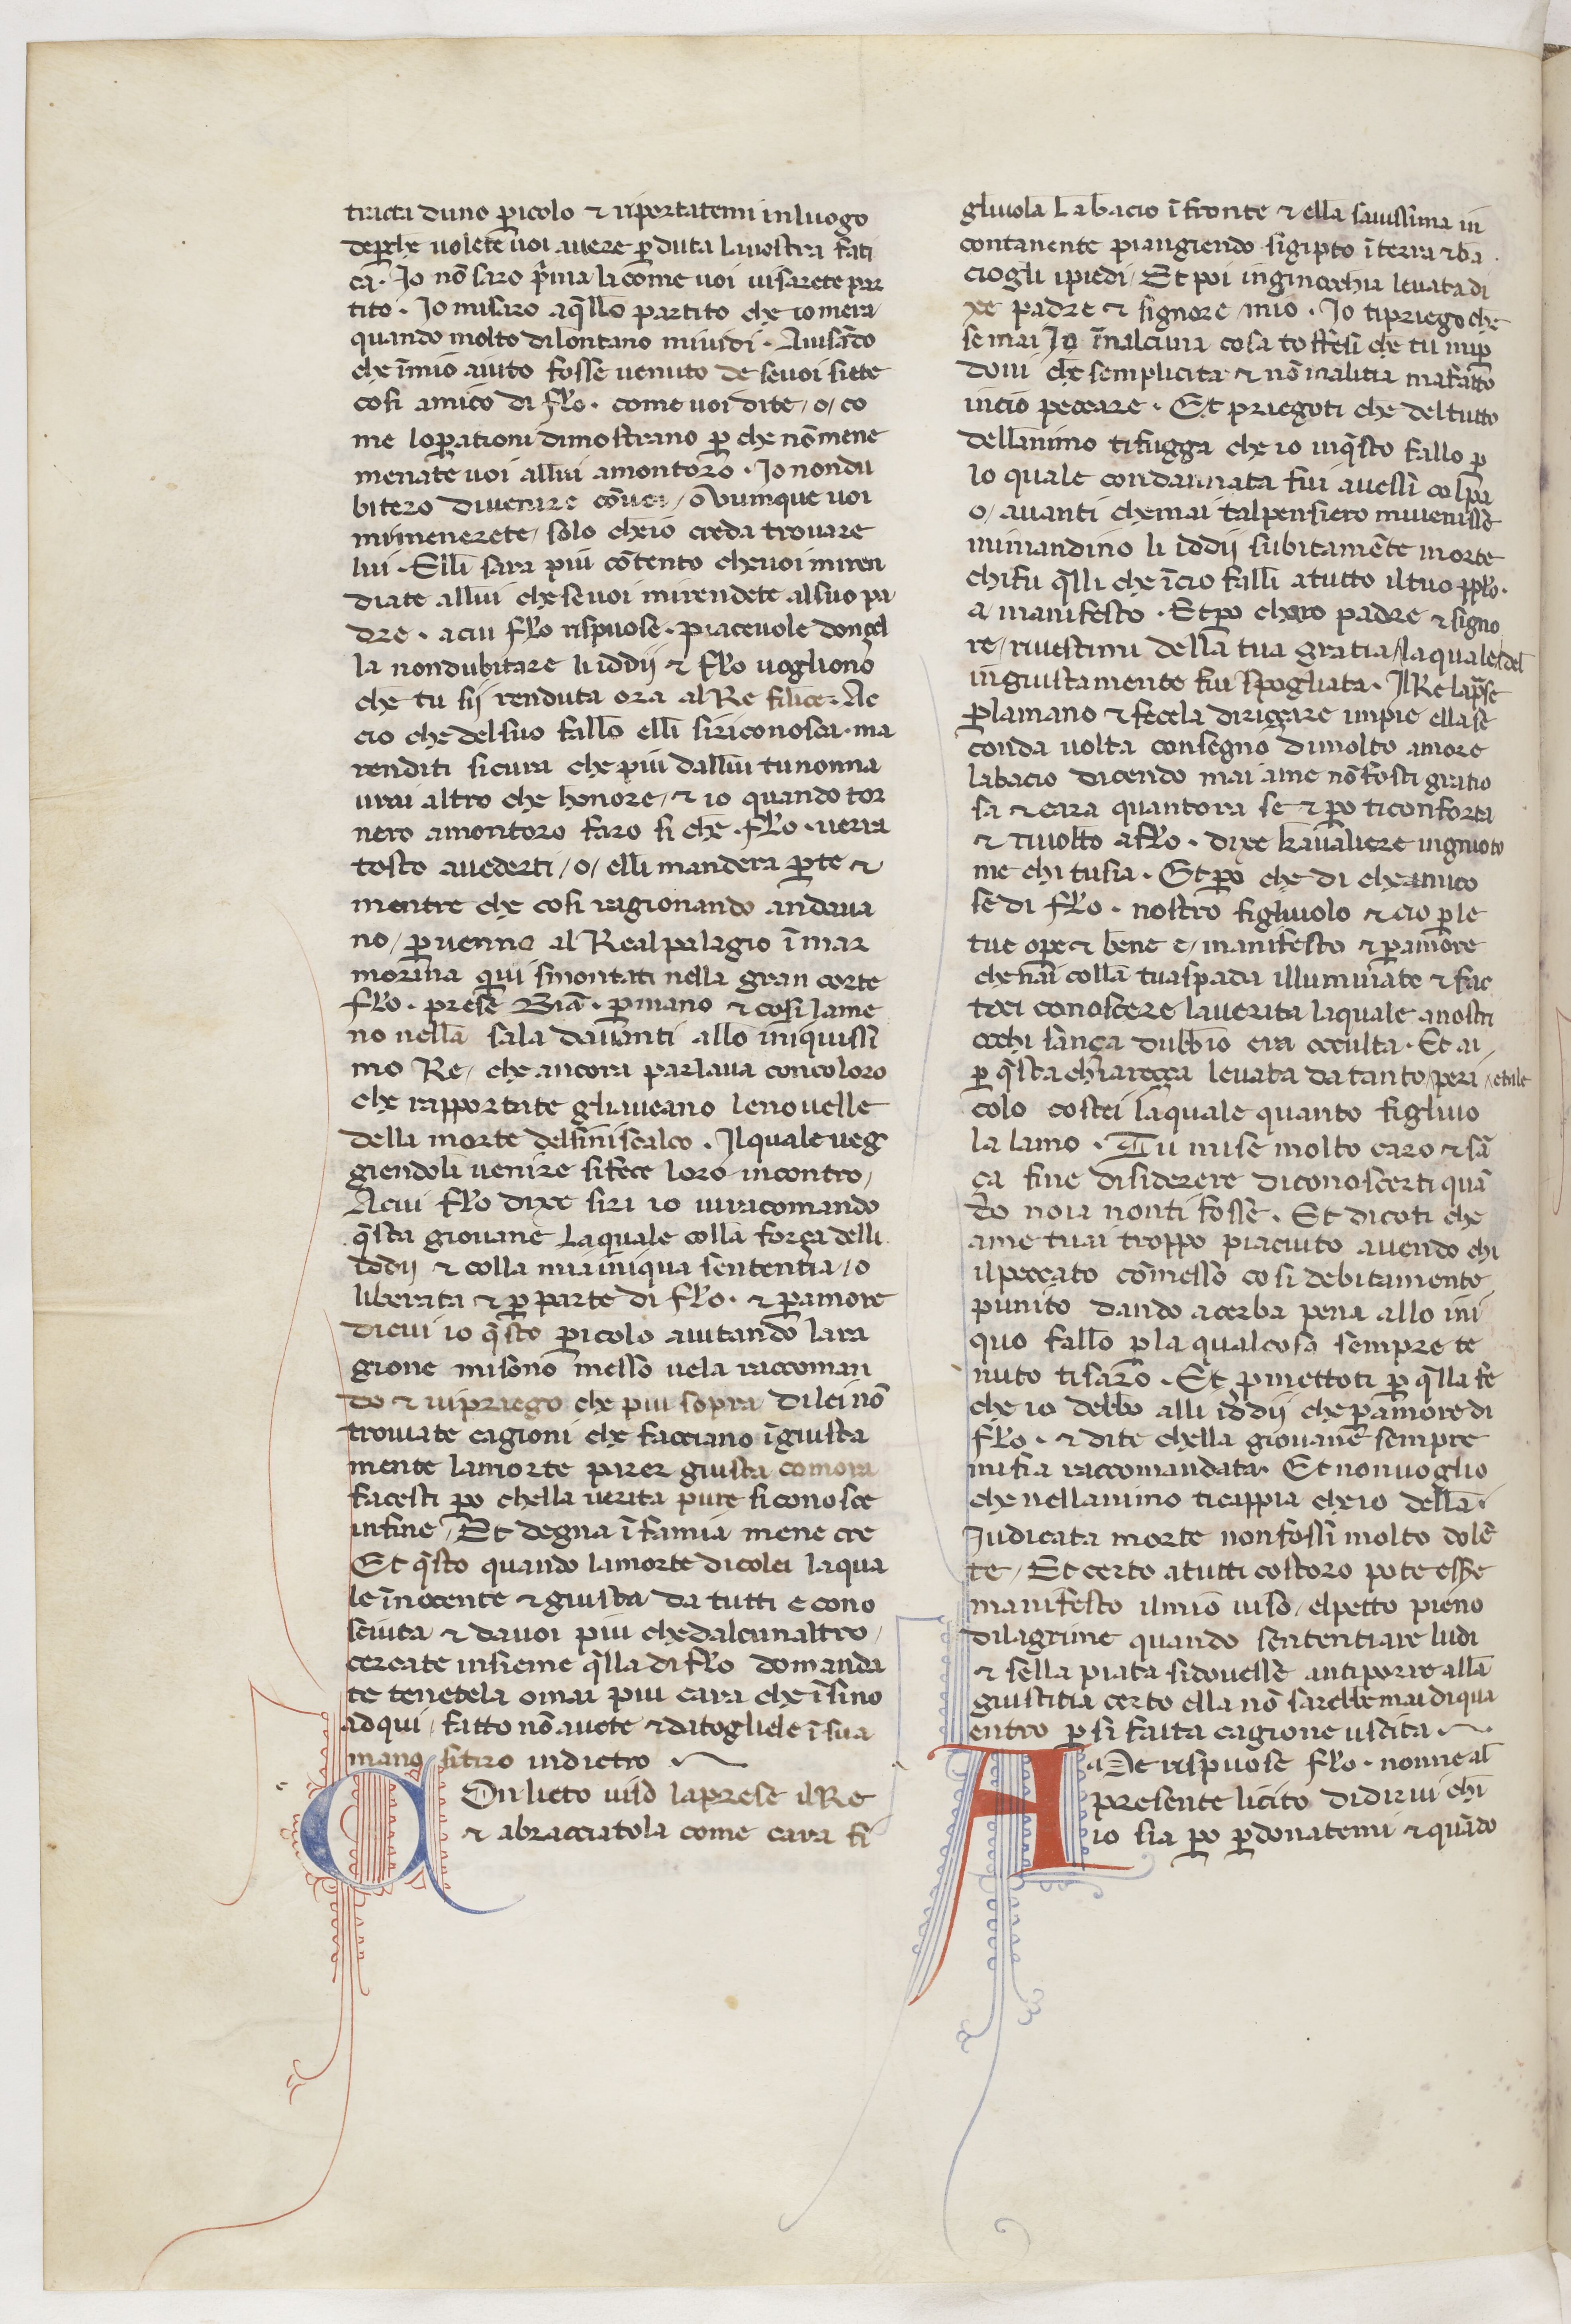 tracta duno ꝑicolo ⁊ riportatemi inluogo
deperche uolete uoi auere ꝑduta lauostra fati
ca. Io nō saro p̄ma la come uoi uisarete par
tito. Io misaro aq̄llo partito che iomera
quando molto dilontano miuidi. Auisādo
che īmio aiuto fosse uenuto de seuoi siete
cosi amico di flo. come uoi dite / o / co
me loꝑationi dimostrano ꝑ che nōmene
menate uoi allui amontoro. Io nondu
bitero diuenire cōuoi / ouunque uoi
mimenerete / solo cheio creda trouare
lui. Elli sara piu cōtento cheuoi miren
diate allui che seuoi mirendete alsuo pa
dre. acui flo rispuose. piaceuole donçel
la nondubitare li iddij ⁊ flo uogliono
che tu sij renduta ora al Re felice. Ac
cio che delsuo fallo elli siriconosca. ma
renditi sicura che piu dallui tunonna
urai altro che honore / ⁊ io quando tor
nero amontoro faro si che. flo. uerra
tosto auederti / o / elli mandera ꝑte ⁊
mentre che cosi ragionando andaua
no / ꝑuenno al Real palagio ī mar
morina qui smontati nella gran corte
flo. prese Biā. ꝑmano ⁊ cosi lame
no nella sala dauanti allo iniquissi
mo Re / che ancora parlaua concoloro
che rapportate gliaueano lenouelle
della morte delsiniscalco. Ilquale ueg
giendoli uenire sifece loro incontro /
Acui flo dixe siri io uiracomando
q̄sta giouane laquale colla força delli
iddij ⁊ colla mia iniqua sententia / o
liberata ⁊ ꝑ parte di flo. ⁊ ꝑamore
dicui io q̄sto ꝑicolo aiutando lara
gione misono messo uela raccoman
do ⁊ uipriego che piu sopra dilei nō
trouiate cagioni che facciano īgiusta
mente lamorte parer giusta comora
facesti ꝑo chella uerita pure siconosce
infine / Et degna īfamia mene cre
Et q̄sto quando lamorte dicolei laqua
le īnocente ⁊ giusta da tutti e cono
sciuta ⁊ dauoi piu chedalcunaltro /
cercate insieme q̄lla diflo domanda
te tenetela omai piu cara che īsino
adqui / fatto nō auete ⁊ datogliele ī sua
mano sitiro indietro
Con lieto uiso laprese ilRe
⁊ abracciatola come cara fi
gliuola labacio ī fronte ⁊ ella sauissima in
contanente piangiendo sigipto ī terra ⁊ ba
ciogli ipiedi / Et poi inginocchia leuata di
xe padre ⁊ signore mio. Io tipriego che
se mai Io īnalcuna cosa toffesi che tu miꝑ
doni che semplicita ⁊ nō malitia mafatto
incio peccare. Et priegoti che deltutto
dellanimo tifugga che io inq̄sto fallo ꝑ
lo quale condannata fui auessi colpa
o / auanti chemai talpensiero miuenisse
mimandino li iddij subitamēte morte
chifu q̄lli che īcio falli atutto iltuo pplo.
a manifesto. Etꝑo charo padre ⁊ signo
re / riuestimi della tua gratia / laquale / del
ingiustamente fui spogliata. IlRe lap̄se
ꝑlamano ⁊ fecela diriççare impie ellase
conda uolta consegno dimolto amore
labacio dicendo mai ame nōfosti gratio
sa ⁊ cara quantora se ⁊ ꝑo ticonforta
⁊ riuolto aflo. dixe kaualiere ingnioto
me chi tusia. Et ꝑo che di cheamico
sedi flo. nostro figliuolo ⁊ cio ꝑle
tue oꝑe ⁊ bene e / manifesto ⁊ ꝑamore
che nai colla tuaspada illuminate ⁊ fac
toci conoscere lauerita laquale anostri
occhi sança dubbio era occulta. Et ai
ꝑ q̄sta chiareçça leuata da tanto / peri / etale
colo costei laquale quanto figliuo
la lamo. Tu mise molto caro ⁊ sā
ça fine disiderere diconoscerti quā
do noia nonti fosse. Et dicoti che
ame tuai troppo piaciuto auendo chi
ilpeccato cōmesso cosi debitamente
punito dando acerba pena allo ini
quo fallo ꝑla qualcosa sempre te
nuto tisaro. Et ꝓmettoti ꝑ q̄lla fe
che io debbo alli iddij che ꝑamore di
flo. ⁊ dite chella giouane sempre
mifia raccomandata. Et nonuoglio
che nellanimo ticappia cheio della
Iudicata morte nonfossi molto dolē
te / Et certo atutti costoro pote esse
manifesto ilmio uiso / elpetto pieno
dilagrime quando sententiare ludi
⁊ sella piata sidouesse antiporre alla
giustitia certo ella nō sarebbe mai diqua
entro ꝑ si fatta cagione uscita
ADe rispuose flo. nonne al
presente licito didirui chi
io sia ꝑo ꝑdonatemi ⁊ quādo